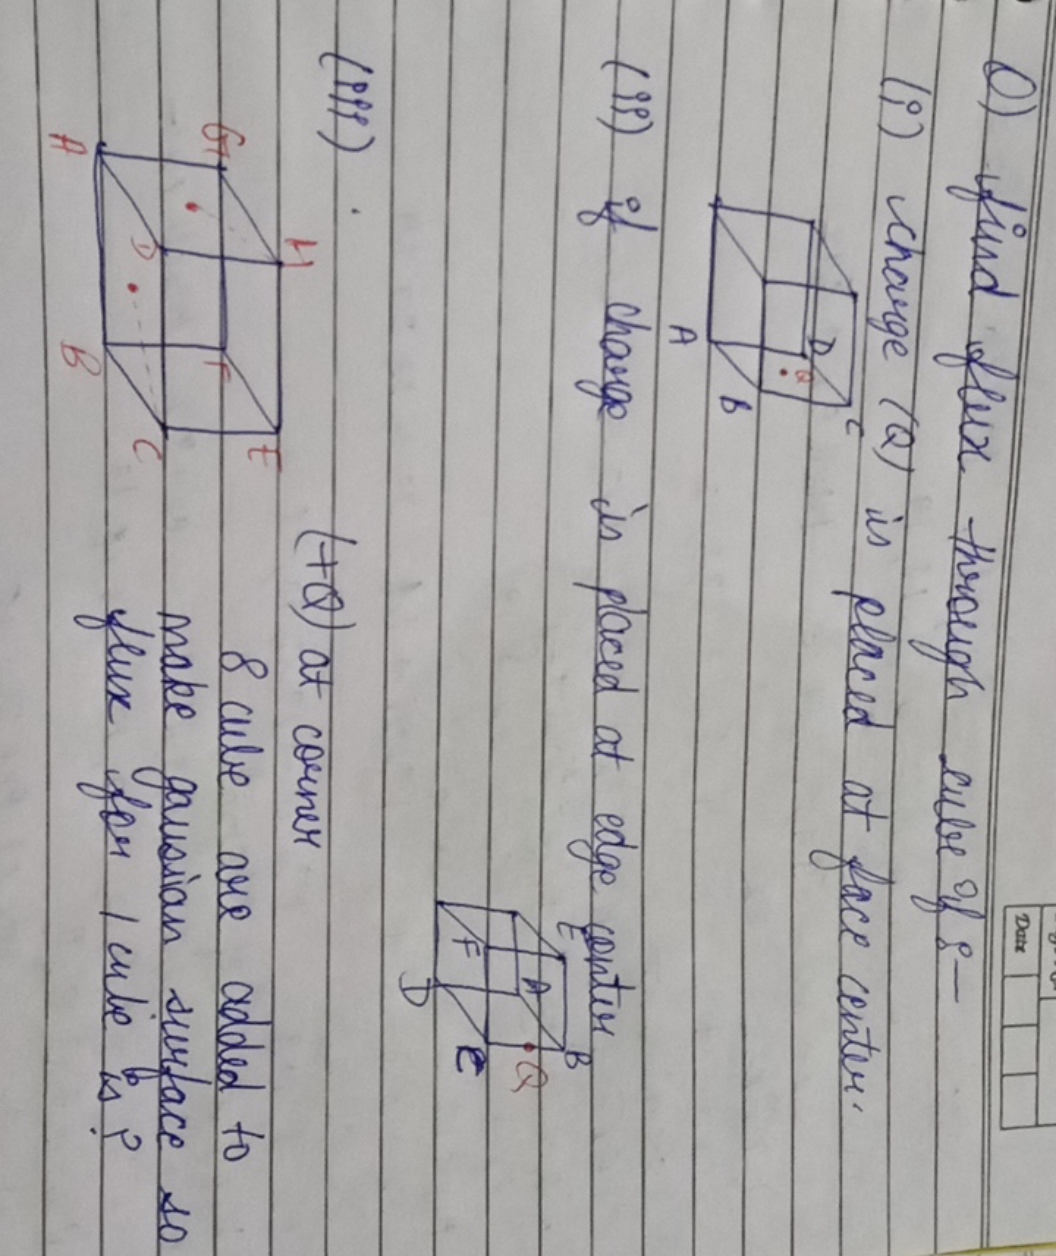 Date
Q) find flux through cube if :-
(i) charge (Q) is placed at face center.
D Q C
A B
(ii) if charge is placed at edge center
E B
A Q
F C
D
(iii) (+Q) at corner
H E
G F
8 cube are added to
D C
make gausian surface so
A B
flux for 1 cube is?